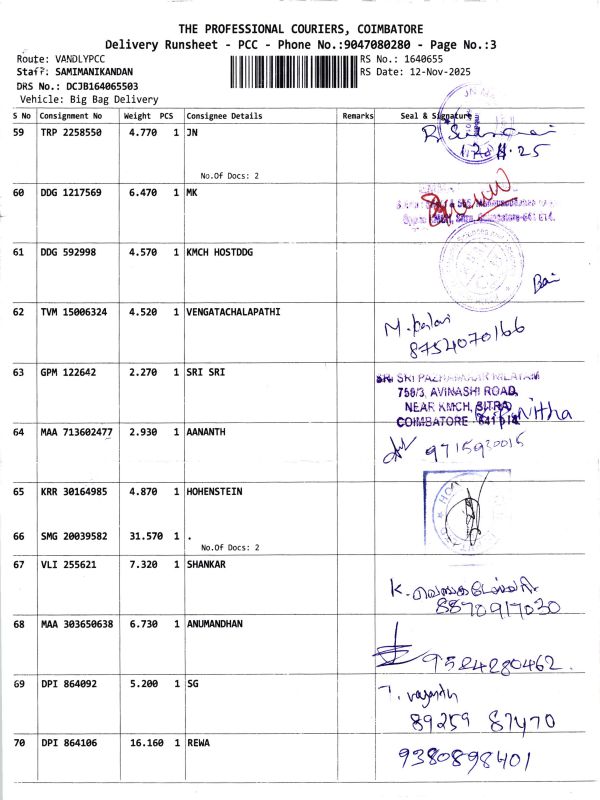 THE PROFESSIONAL COURIERS, COIMBATORE
Delivery Runsheet - PCC - Phone No.:9047080280 - Page No.:3
Route: VANDLYPCC
RS No.: 1640655
Staff: SAMIMANIKANDAN
RS Date: 12-Nov-2025
DRS No.: DCJB164065503
Vehicle: Big Bag Delivery
S No Consignment No Weight PCS Consignee Details Remarks Seal & Signature
59 TRP 2258550 4.770 1 JN
No.Of Docs: 2
60 DDG 1217569 6.470 1 MK
61 DDG 592998 4.570 1 KMCH HOSTDDG
62 TVM 15006324 4.520 1 VENGATACHALAPATHI
8754070166
63 GPM 122642 2.270 1 SRI SRI
SRI SRI
758/3, AVINASHI ROAD,
NEAR KMCH, SITRA
COIMBATORE - 641 014
64 MAA 713602477 2.930 1 AANANTH
9715930015
65 KRR 30164985 4.870 1 HOHENSTEIN
66 SMG 20039582 31.570 1 .
No.Of Docs: 2
67 VLI 255621 7.320 1 SHANKAR
8870917030
68 MAA 303650638 6.730 1 ANUMANDHAN
9524280462.
69 DPI 864092 5.200 1 SG
89259 87470
70 DPI 864106 16.160 1 REWA
9380898401